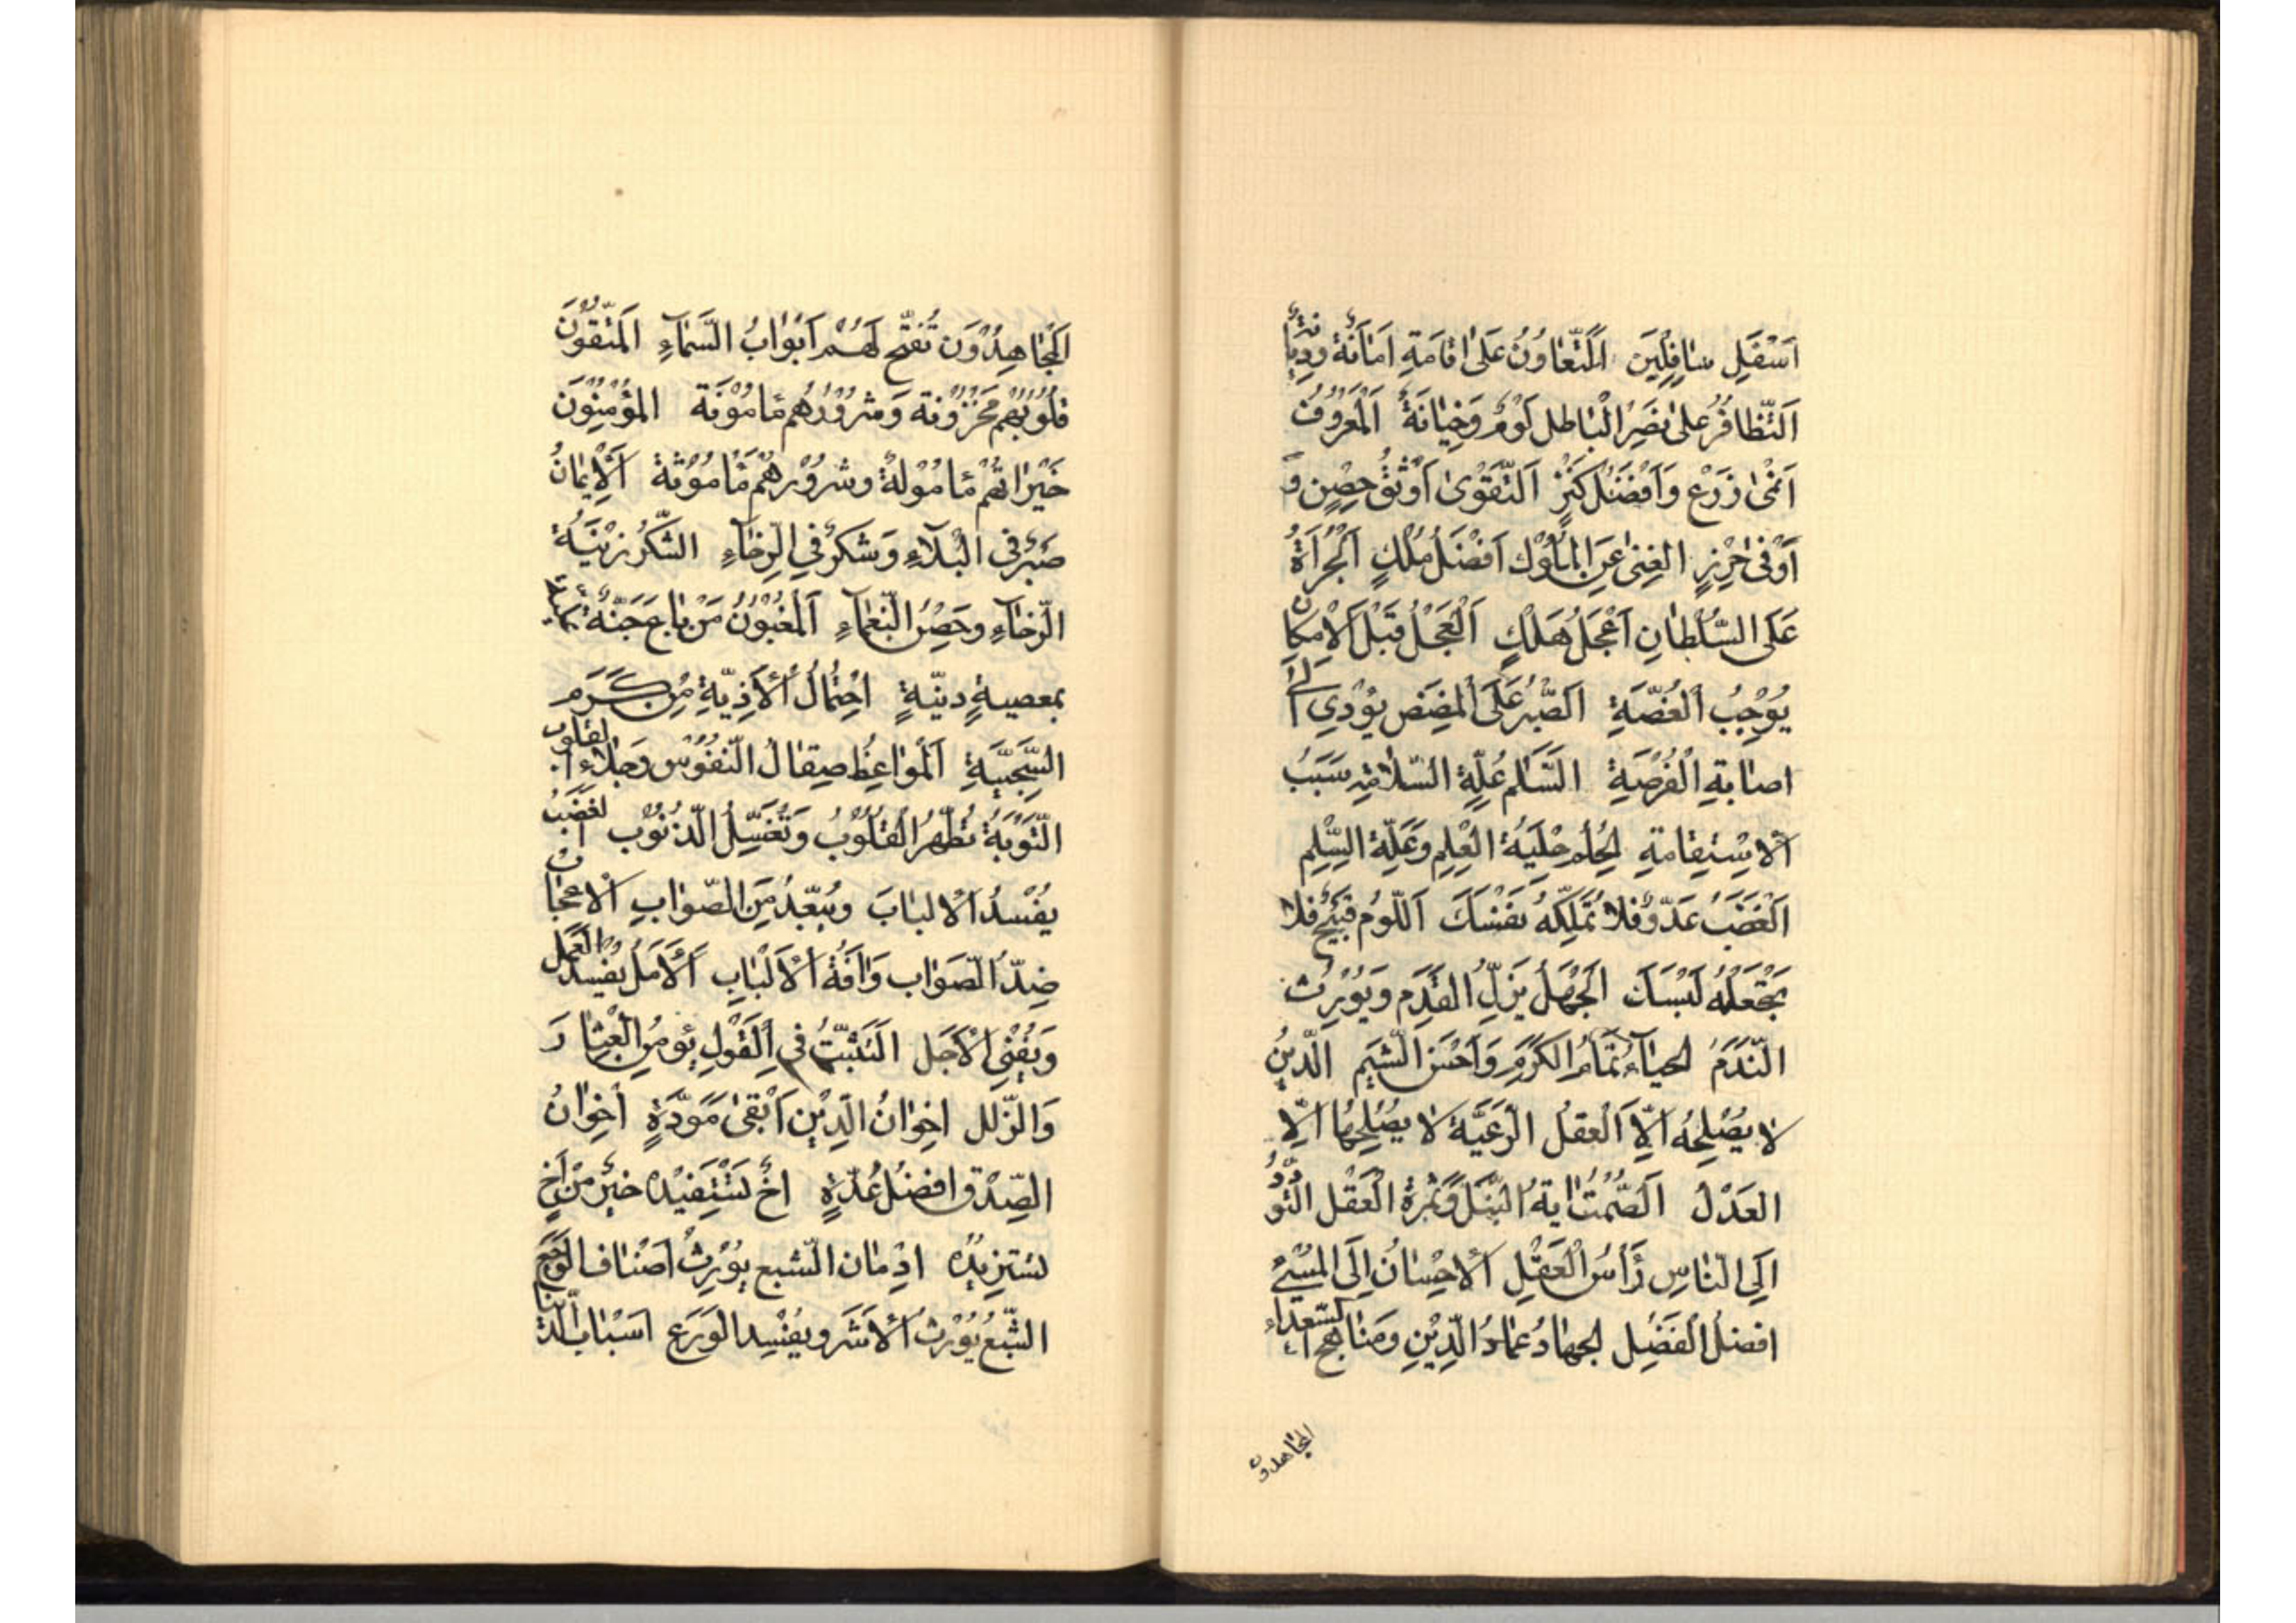 اَسْفَلِ سٰافِلِينَ اَلتَّعٰاوُنُ عَلىٰ اِقٰامَةِ اَمٰانَةٌ وَدِيٰانَةٌ
اَلتَّظٰافُرُ عَلىٰ نَصْرِ الْبٰاطِلِ لَوْمٌ وَخِيٰانَةٌ اَلْمَعْرُوْفُ
اَنْمىٰ زَرْعٍ وَاَفْضَلُ كَنْزٍ اَلتَّقْوىٰ اَوْثَقُ حِصْنٍ وَ
اَوْقىٰ حِرْزٍ الغِنىٰ عَنِ الْمُلُوْكِ اَفْضَلُ مُلْكٍ اَلْجُرْاَةُ
عَلَى السُّلْطٰانِ اَعْجَلُ هَلْكٍ اَلْعَجَلُ قَبْلَ الْاِمْكٰانِ
يُوْجِبُ الْغُصَّةِ اَلصَّبْرُ عَلَى الْمَضَضِ يُؤَدِي اِلىٰ
اِصٰابَةِ الْفُرْصَةِ السَّلم عُلَّةِ السَّلامَةِ سَبَبُ
اَلْاِسْتِقٰامَةِ الحُلْمُ حِلْيَةُ الْعِلْمِ وَعَلَّةُ السِّلْمِ
اَلْغَضَبُ عَدُوٌّ فَلا تُمَلِّكْهُ نَفْسَكَ اَللَّوْمُ قَبِيْحٌ فَلا
تَجْعَلْهُ لَبْسَكَ اَلْجَهْلُ يَزِلُّ القَدَمِ وَيُوْرِثُ
النَّدَمَ الحيٰآءُ تَمٰامُ الكَرَمِ وَاَحْسَنُ الشِّيَمِ الدِّيْنُ
لا يُصْلِحُهُ اِلَّا الْعَقْلُ الرَّعِيَّةُ لا يُصْلِحُهٰا اِلَّا
العَدْلُ اَلصَّمْتُ اٰيَةُ النُّبْلِ وَثَمَرَةُ الْعَقْلِ التَّوَدُّدُ
اِلَى النّٰاسِ رَأْسُ الْعَقْلِ اَلْاِحْسٰانُ اِلَى الْمُسْيْءِ
افضلُ الْفَضْلِ الجهٰادُ عِمٰادُ الدِّيْنِ وَمِنٰاهج السّعداء
المجٰاهدون
اَلْمُجٰاهِدُوْنَ تُفَتَّحُ لَهُمْ اَبْوٰابُ السَّمٰاءِ اَلْمُتَّقُوْنَ
قُلُوْبُهُمْ مَحْزُوْنَة وَشُرُوْرُهُمْ مٰامُوْنَة المُؤْمِنُوْنَ
خَيْرٰاتُهُمْ مٰامُوْلَةٌ وَشُرُوْرُهُمْ مٰامُوْنَة اَلْاِيْمٰانُ
صَبْرٌ فِي الْبَلآءِ وَشُكرٌ فِي الرخٰآءِ الشُّكْرُ زِيْنَةُ
الرَّخٰآءِ وحَصْنُ النَّعْمٰاءِ اَلْمَغْبُوْنُ مَنْ بٰاعَ جَنَّةً
بمعصيةٍ دنيّةٍ احْتِمٰالُ الْاَذِيَّةِ مِنْ كَرَمِ
السَّجِيَّةِ اَلْمَوٰاعِظُ صِقٰالُ النُّفُوْسِ وَجَلٰاءِ القلوب
التَّوْبَةُ تُطَهِّرُ القُلُوْبُ وَتَغْسِلُ الذُّنُوْبَ الغَضَبُ
يُفْسِدُ الْالبٰابَ وَيُبَعِّدُ مِنَ الصَّوٰابِ اَلْاِعْجٰابُ
ضِدُّ الصَّوٰابِ وَاٰفَةُ الْاَلْبٰابِ اَلْاَمَلُ يُفْسِدُ العَمَلَ
وَيُفْنِي الْاَجَل التَّثَبُّتُ فِي الْقَوْلِ يُؤمِنُ الْعِثٰارَ
وَالزَّلَل اِخْوٰانُ الدِّيْنِ اَبْقىٰ مَوَدَّةٍ اِخْوٰانُ
الصِّدْقِ افضلُ عُدَّةٍ اَخٌ تَسْتَفِيْدُهُ خَيْرٌ مِنْ اَخٍ
تستزِيْدُهُ اِدْمٰان الشبع يُوْرِثُ اَصْنٰاف الوَجَعِ
الشَّبْعُ يُوْرِثُ الْاَشَرَ وَيُفْسِد الوَرَع اَسْبٰاب الدُّنيا